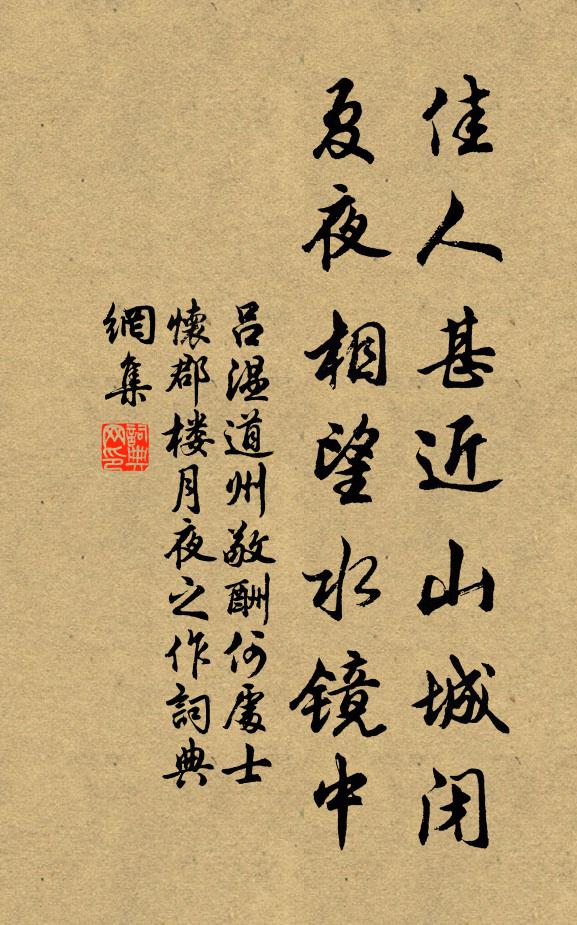 佳人甚近山城闭
夏夜相望水镜中
吕温道州敬酬何處士
懷郡楼月夜之作詞典
網集
詞典
网印